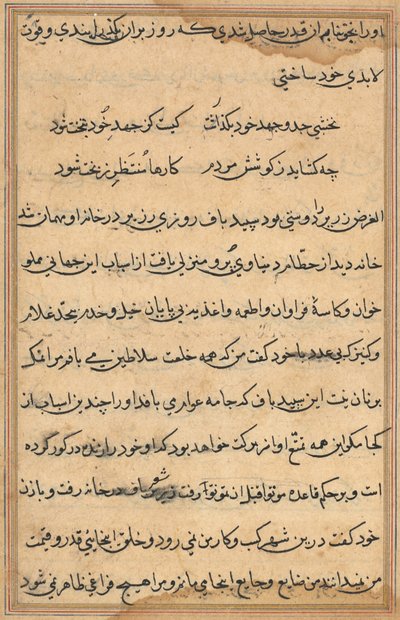 او را بختی بنام از قدر حاصل شدی که روز برار یکدرا بندی و قوت
لابدی خود ساختی
نخشبی جد و جهد خود بگذاشت کیست کز جهد خود بتخت شود
چه گشاید ز کوشش مردم کارها منتظر ز بخت شود
الغرض زریر را دوستی بود سپید باف روزی زریر در خانه او مهمان شد
خانه دید از حطام دنیاوی پر و منزلی یافت از اسباب این جهانی مملو
خوان و کاسهٔ فراوان و اطعمه و اغذیه بی پایان خیل و خدم بیحد غلام
و کنیزک بی عدد با خود گفت من که همه خلعت سلاطین می بافم مرا نمک
بر نان نیست این سپید باف که جامه عواری بافد او را چندین اسباب از
کجا مگو این همه تمتع او از برکت خواهد بود که او خود را زنده در گور کرده
است و بر حکم قاعده موتوا قبل ان تموتوا رفت زریر شعر باف در خانه رفت و با زن
خود گفت درین شهر کسب و کار من نمی رود و خلق اینجایی قدر و قیمت
من نمیدانند من ضایع و جایع اینجا می مانم و مرا هیچ فراغی ظاهر نمی شود